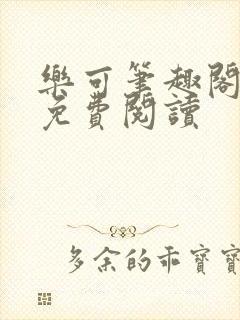 樂可筆趣閣
免費閱讀
多余的乖寶寶